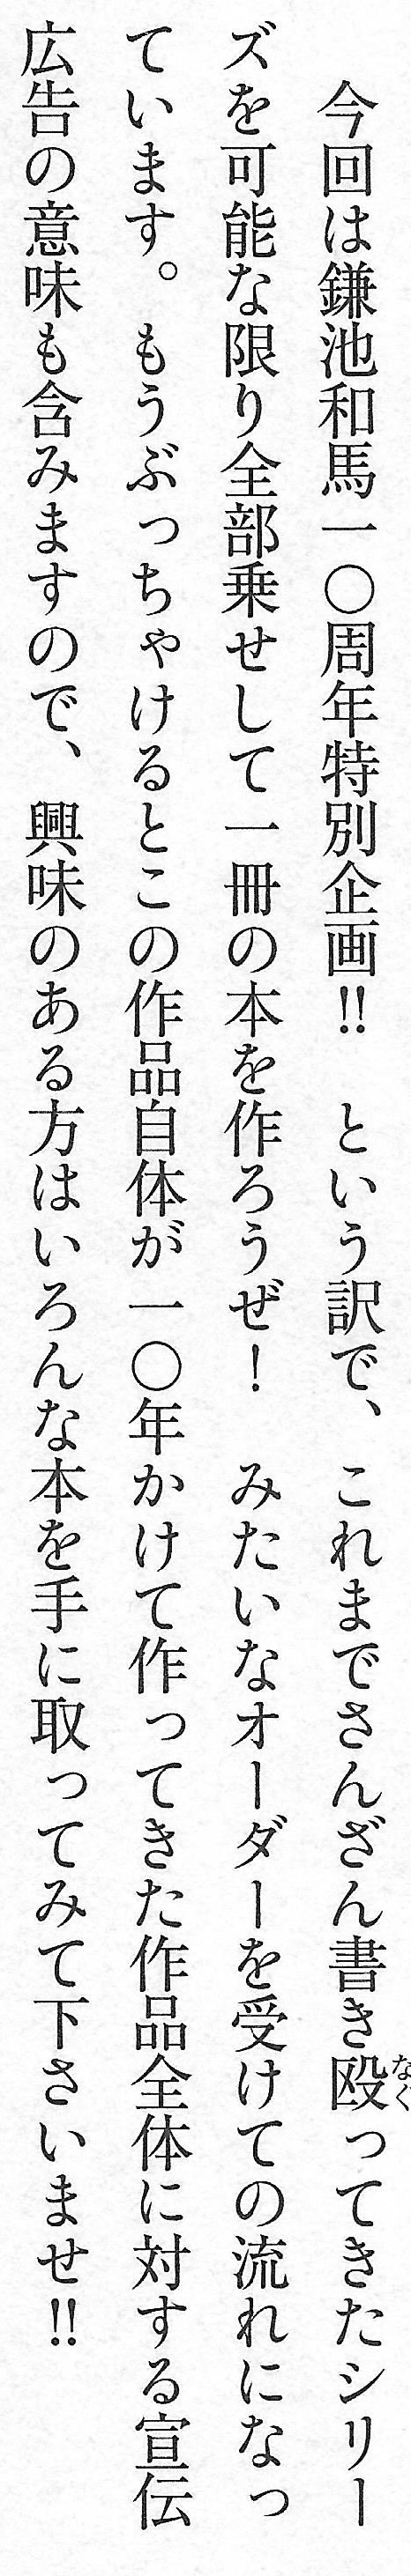 今回は鎌池和馬一〇周年特別企画!!　という訳で、これまでさんざん書き殴ってきたシリー
ズを可能な限り全部乗せして一冊の本を作ろうぜ！　みたいなオーダーを受けての流れになっ
ています。もうぶっちゃけるとこの作品自体が一〇年かけて作ってきた作品全体に対する宣伝
広告の意味も含みますので、興味のある方はいろんな本を手に取ってみて下さいませ!!